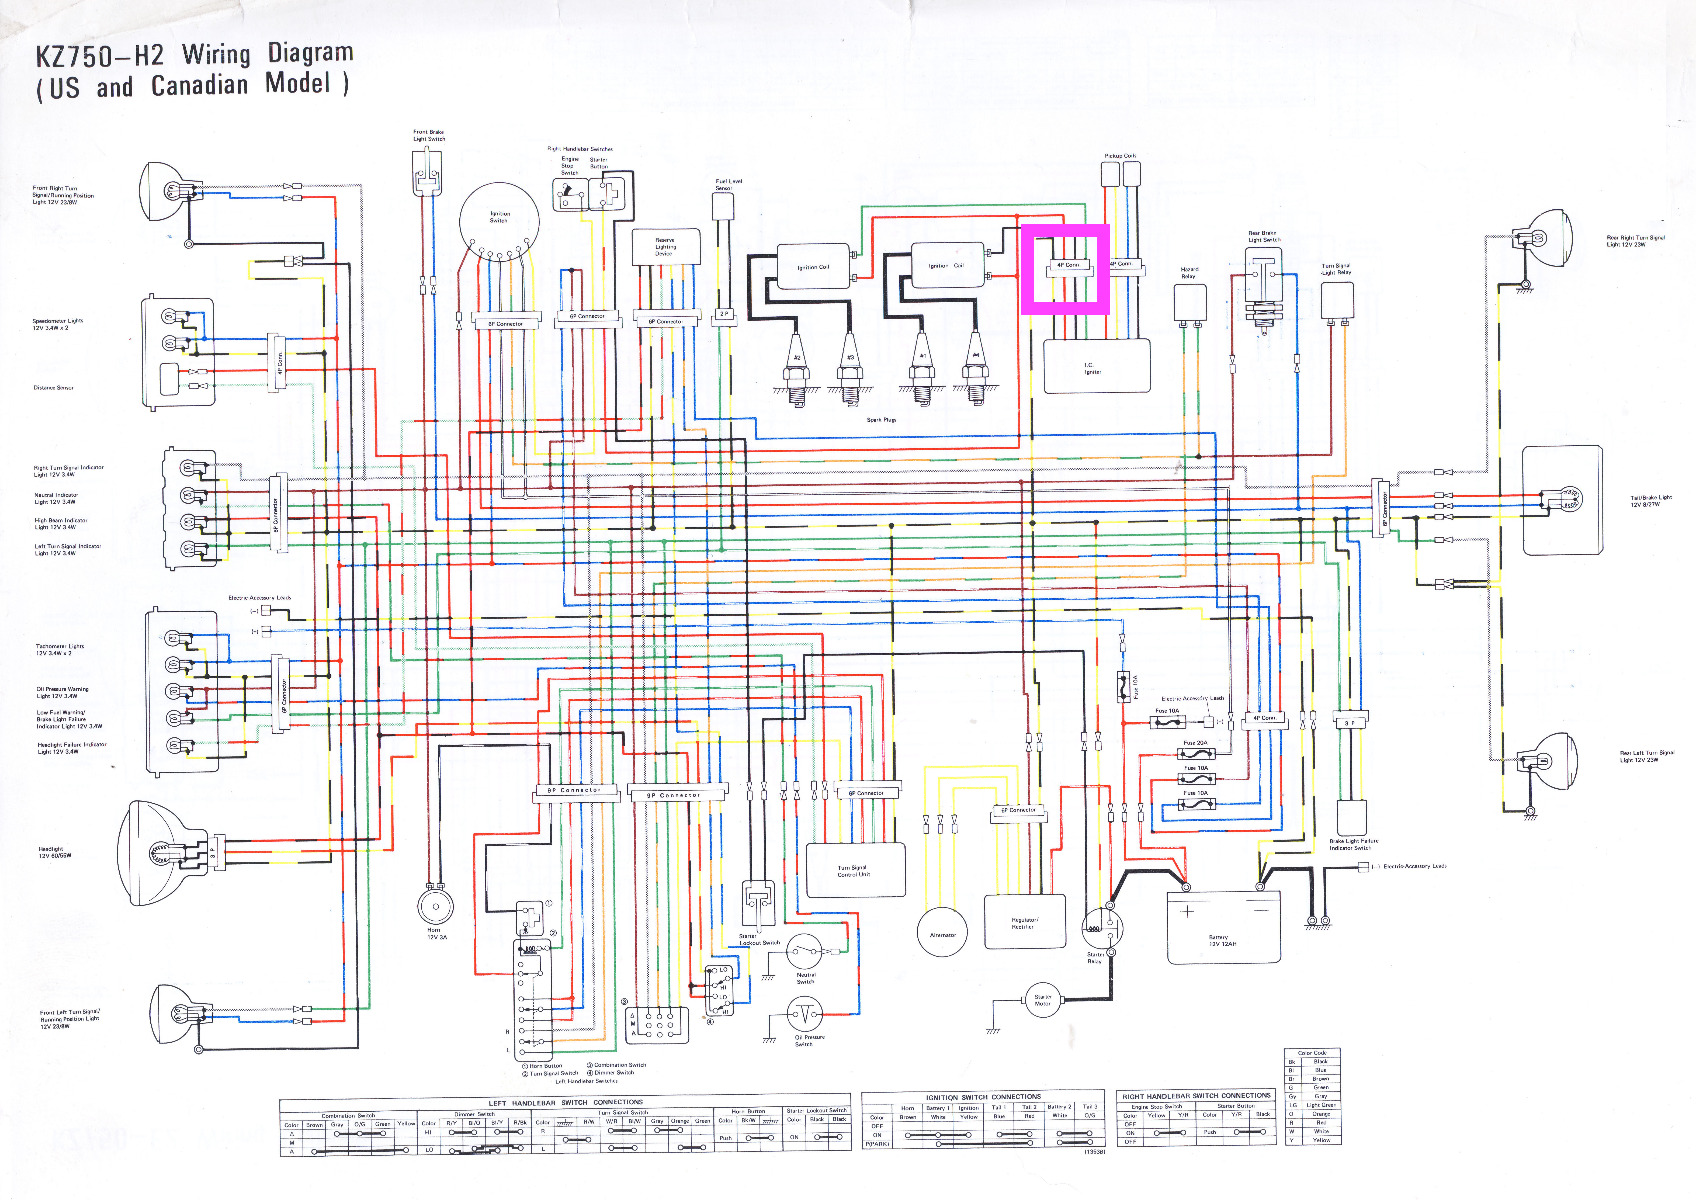 KZ750-H2 Wiring Diagram
(US and Canadian Model )
Front Brake
Light Switch
Right Handlebar Switches
Engine
Stop
Switch
Starter
Button
Pickup Coils
Front Right Turn
Signal/Running Position
Light 12V 23/8W
Ignition
Switch
Fuel Level
Sensor
Reserve
Lighting
Device
Ignition Coil
Ignition Coil
4P Conn.
4P Conn.
Hazard
Relay
Rear Brake
Light Switch
Turn Signal
Light Relay
Rear Right Turn Signal
Light 12V 23W
Speedometer Lights
12V 3.4W x 2
4P Conn.
6P Connector
6P Connector
6P Connector
2 P
#2
#3
#1
#4
I.C.
Igniter
Distance Sensor
Spark Plugs
Right Turn Signal Indicator
Light 12V 3.4W
Neutral Indicator
Light 12V 3.4W
High Beam Indicator
Light 12V 3.4W
Left Turn Signal Indicator
Light 12V 3.4W
6P Connector
6P Connector
Tail/Brake Light
12V 8/27W
Electric Accessory Leads
(-)
Tachometer Lights
12V 3.4W x 2
Oil Pressure Warning
Light 12V 3.4W
Low Fuel Warning/
Brake Light Failure
Indicator Light 12V 3.4W
Headlight Failure Indicator
Light 12V 3.4W
6P Connector
Fuse 10A
Electric Accessory Leads
Fuse 10A
4P Conn.
3 P
Fuse 20A
Fuse 10A
Fuse 10A
Rear Left Turn Signal
Light 12V 23W
9P Connector
9P Connector
6P Connector
6P Connector
Headlight
12V 60/55W
3 P
Turn Signal
Control Unit
Brake Light Failure
Indicator Switch
(-) Electric Accessory Leads
Horn
12V 3A
Starter
Lockout Switch
Neutral
Switch
Alternator
Regulator/
Rectifier
Starter
Relay
Battery
12V 12AH
Front Left Turn Signal/
Running Position Light
12V 23/8W
LO
HI
LO
HI
Oil Pressure
Switch
Starter
Motor
A
M
A
R
L
① Horn Button ③ Combination Switch
② Turn Signal Switch ④ Dimmer Switch
Left Handlebar Switches
Color Code
Bk Black
Bl Blue
Br Brown
G Green
Gy Gray
LG Light Green
O Orange
R Red
W White
Y Yellow
LEFT HANDLEBAR SWITCH CONNECTIONS
Combination Switch
Color Brown Gray O/G Green Yellow
A
M
A
Dimmer Switch
Color R/Y Bl/O Bl/Y R/Bk
HI
LO
Turn Signal Switch
Color W/R Bl/W Gray Orange Green
R
L
Horn Button
Color Bk/W
Push
Starter Lockout Switch
Color Black Black
ON
IGNITION SWITCH CONNECTIONS
Horn Battery 1 Ignition Tail 1 Tail 2 Battery 2 Tail 3
Color Brown White Yellow Blue Red White O/G
OFF
ON
P(PARK)
(1353B)
RIGHT HANDLEBAR SWITCH CONNECTIONS
Engine Stop Switch
Color Yellow Y/R
OFF
ON
OFF
Starter Button
Color Y/R Black
Push